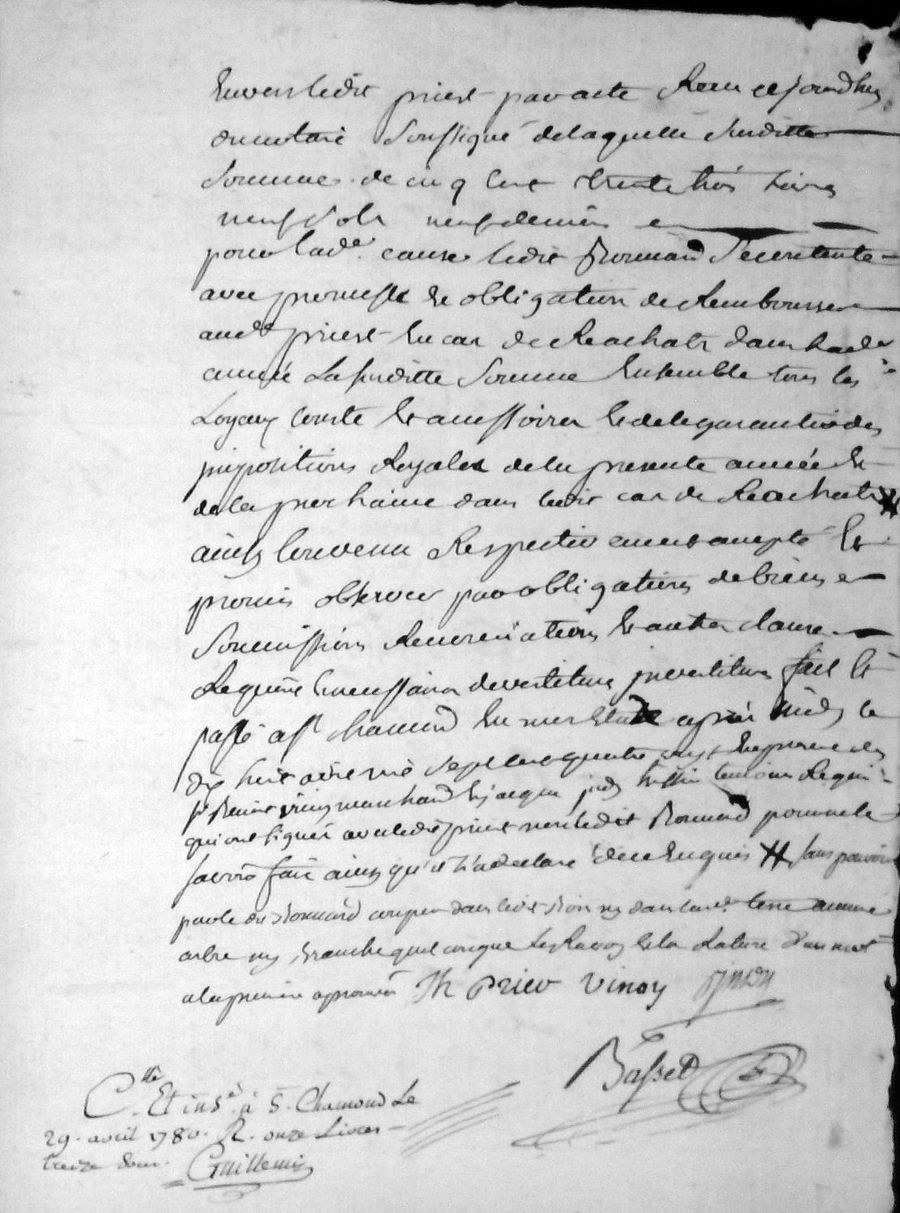 Envers ledit priest par acte Recu cejourdhuy
du notaire soussigné delaquelle susditte
Somme de cinq cent trente trois Livres
neuf sols neuf deniers et
pour lad.e cause ledit Bonnard Secontente
avec promesse et obligation de Rembourser
aud.t priest En cas de Reachats dans lad.e
année La susditte Somme Ensemble tous les
Loyaux couts et accessoires et dela garantie des
impositions Royales dela presente année Et
dela prochaine dans ledit cas de Reachats #
ainsy Convenu Respectivement accepté Et
promis observer par obligations de biens et
Soumissions Renonciations et autres clauses
Requises necessaires devestiture investiture fait et
passé a St Chamond En mon Etude après midy le
dix huit avril mil sept cent quatre vingt En presence des
sr vinoy marchand Et Jacques temoins Requis
qui ont signés avec ledit priest non ledit Bonnard pour ne le
savoir faire ainsy qu'il l'a déclaré dece Enquis # sans pouvoir
par le dit Bonnard couper dans ledit ny dans lad.e terre aucuns
arbre ny branche quelconque Le Renvoy Et la Rature d'un mot
a la premiere aprouvés Th Prier Vinoy
Basset
C.lle Et ins.é à S. Chamond Le
29. avril 1780. R. onze Livres
treize sous. Guillemin